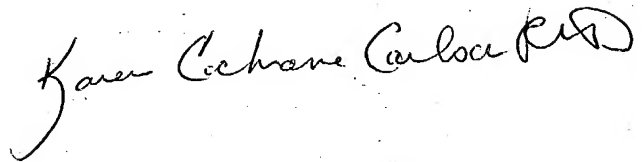 Karen Cochrane Carlson PhD